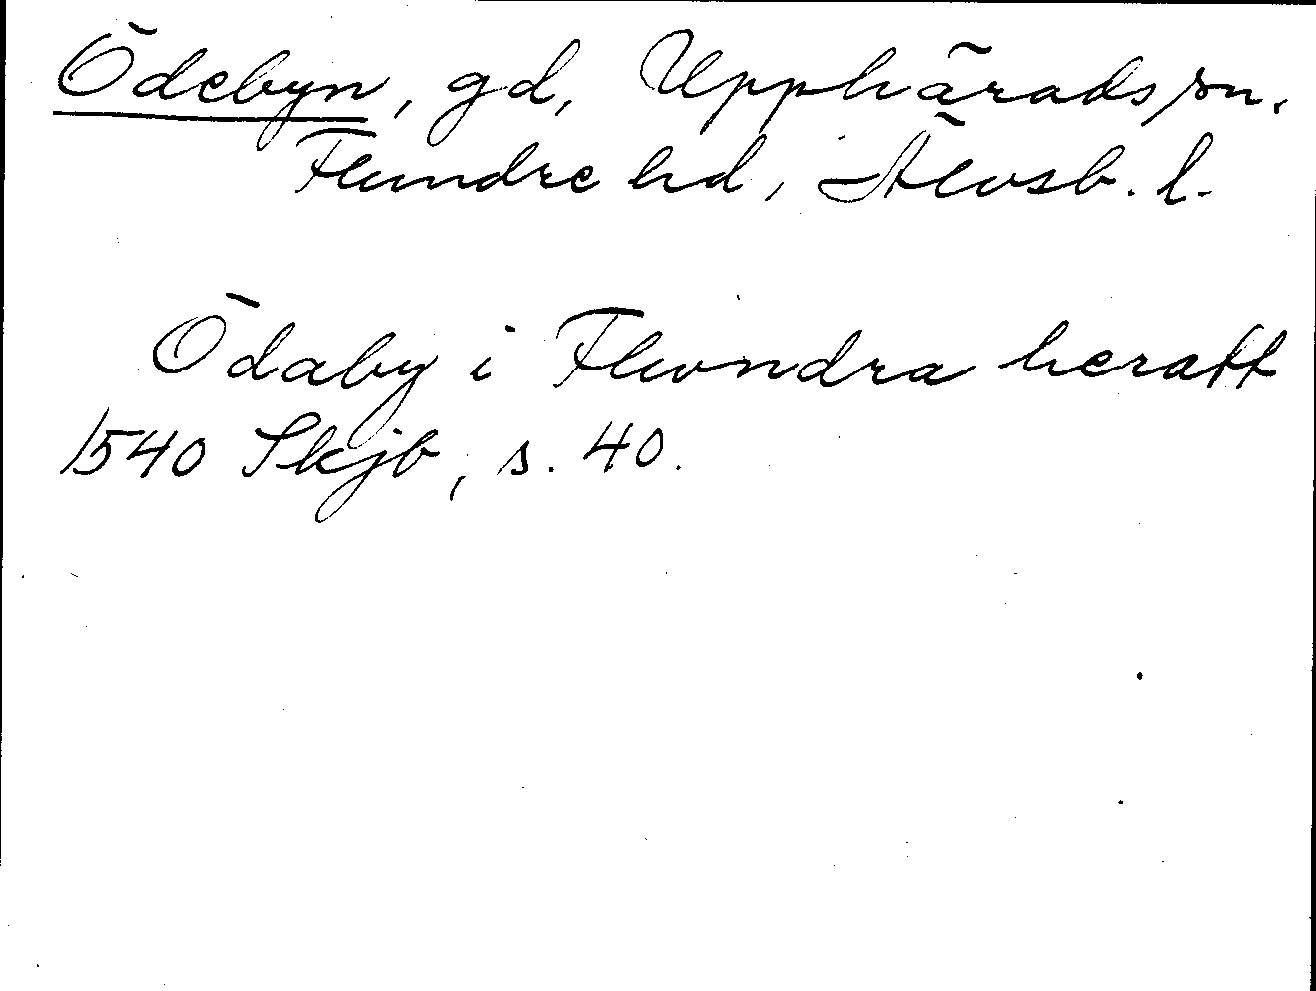 Ödebyn, gd, Upphärads sn.
Flundre hd, Älvsb. l.
Ödaby i Flundra heratt
1540 Skjb, s. 40.